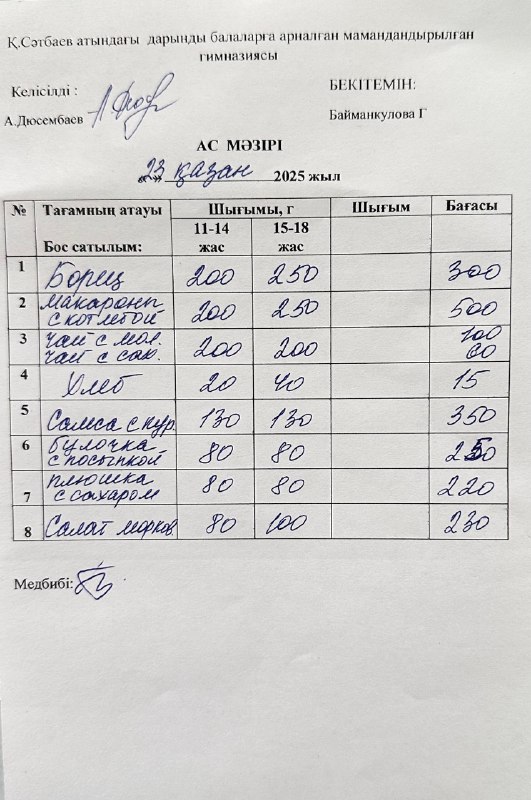 Қ.Сәтбаев атындағы дарынды балаларға арналған мамандандырылған
гимназиясы
Келісілді :
БЕКІТЕМІН:
А.Дюсембаев
Байманкулова Г
АС МӘЗІРІ
«23» қазан 2025 жыл
№ Тағамның атауы Шығымы, г Шығым Бағасы
Бос сатылым: 11-14 жас 15-18 жас
1 Борщ 200 250 300
2 макароны с котлетой 200 250 500
3 чай с мол. чай с сах. 200 200 100 60
4 Хлеб 20 40 15
5 Самса с кур 130 130 350
6 булочка с посыпкой 80 80 250
7 плюшка с сахаром 80 80 220
8 Салат морков 80 100 230
Медбибі: